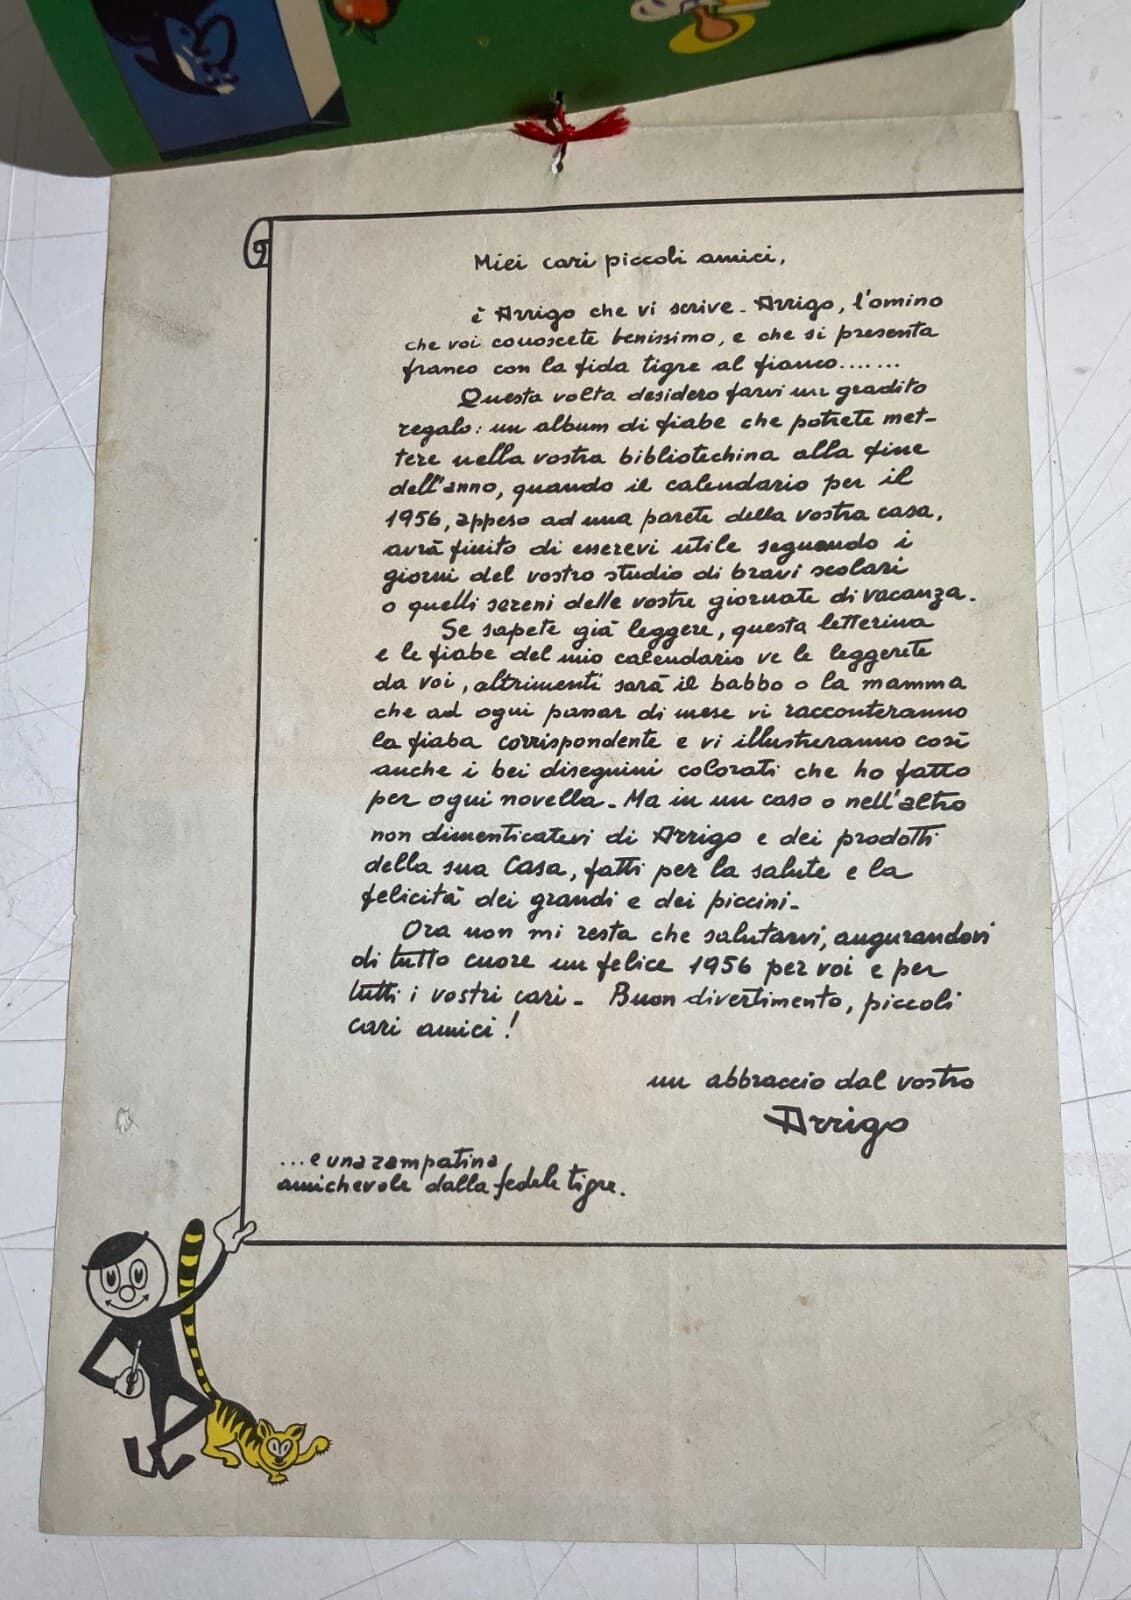 Miei cari piccoli amici,
è Arrigo che vi scrive. Arrigo, l'omino
che voi conoscete benissimo, e che si presenta
franco con la fida tigre al fianco.......
Questa volta desidero farvi un gradito
regalo: un album di fiabe che potrete met-
tere nella vostra bibliotechina alla fine
dell'anno, quando il calendario per il
1956, appeso ad una parete della vostra casa,
avrà finito di esservi utile segnando i
giorni del vostro studio di bravi scolari
o quelli sereni delle vostre giornate di vacanza.
Se sapete già leggere, questa letterina
e le fiabe del mio calendario ve le leggerete
da voi, altrimenti sarà il babbo o la mamma
che ad ogni passar di mese vi racconteranno
la fiaba corrispondente e vi illustreranno così
anche i bei disegnini colorati che ho fatto
per ogni novella. Ma in un caso o nell'altro
non dimenticatevi di Arrigo e dei prodotti
della sua Casa, fatti per la salute e la
felicità dei grandi e dei piccini.
Ora non mi resta che salutarvi, augurandovi
di tutto cuore un felice 1956 per voi e per
tutti i vostri cari. Buon divertimento, piccoli
cari amici!
un abbraccio dal vostro
Arrigo
...e una zampatina
amichevole dalla fedele tigre.